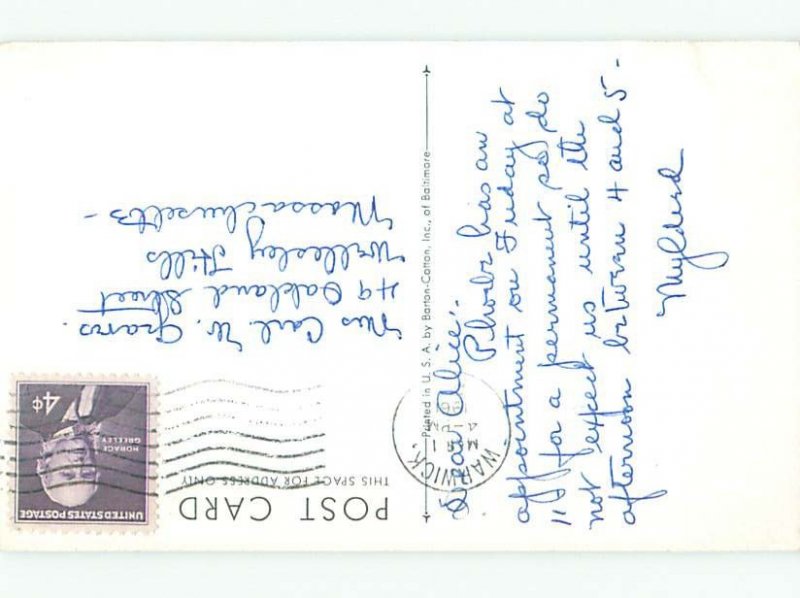 POST CARD
THIS SPACE FOR ADDRESS ONLY
UNITED STATES POSTAGE
HORACE
GREELEY
4¢
WARWICK,
Mrs Carl W.
49 Oakland Street
Wellesley Hills
Massachusetts -
Printed in U. S. A. by Barton-Cotton, Inc., of Baltimore
Dear Alice:-
Phoebe has an
appointment on Friday at
11 for a permanent so do
not expect us until the
afternoon between 4 and 5 -
Myldred